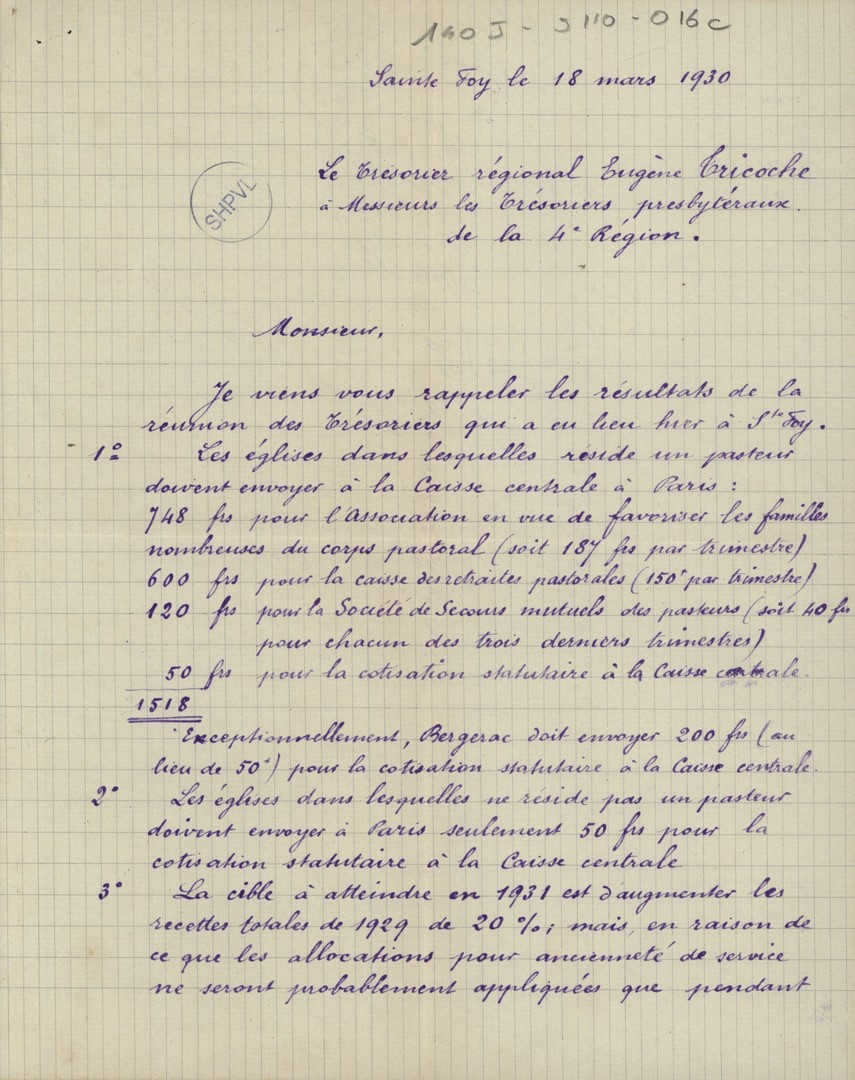 140 J - J 110 - 016 c
Sainte Foy le 18 mars 1930
SHPVL
Le Trésorier régional Eugène Tricoche
à Messieurs les Trésoriers presbytéraux
de la 4e Région.
Monsieur,
Je viens vous rappeler les résultats de la
réunion des Trésoriers qui a eu lieu hier à Ste Foy.
1° Les églises dans lesquelles réside un pasteur
doivent envoyer à la Caisse centrale à Paris :
748 frs pour l'Association en vue de favoriser les familles
nombreuses du corps pastoral (soit 187 frs par trimestre)
600 frs pour la caisse des retraites pastorales (150f par trimestre)
120 frs pour la Société de Secours mutuels des pasteurs (soit 40 frs
pour chacun des trois derniers trimestres)
50 frs pour la cotisation statutaire à la Caisse centrale.
1518
Exceptionnellement, Bergerac doit envoyer 200 frs (au
lieu de 50f) pour la cotisation statutaire à la Caisse centrale.
2° Les églises dans lesquelles ne réside pas un pasteur
doivent envoyer à Paris seulement 50 frs pour la
cotisation statutaire à la Caisse centrale
3° La cible à atteindre en 1931 est d'augmenter les
recettes totales de 1929 de 20 %; mais, en raison de
ce que les allocations pour ancienneté de service
ne seront probablement appliquées que pendant